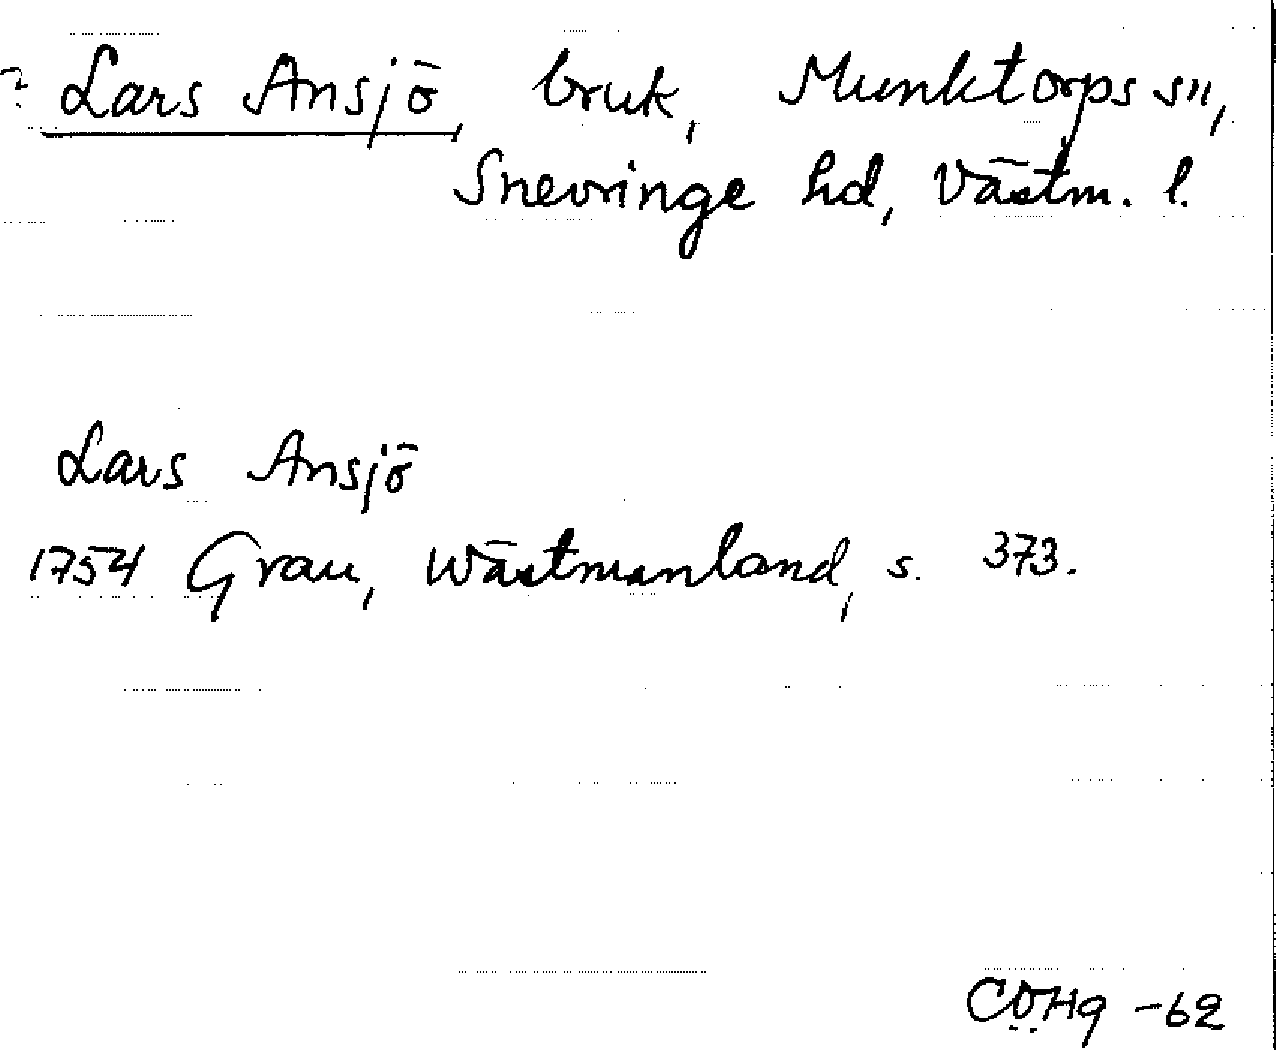 ? Lars Ansjö, bruk, Munktorps sn,
Snevringe hd, Västm. l.
Lars Ansjö
1754 Grau, Wästmanland, s. 373.
CÖHg -62